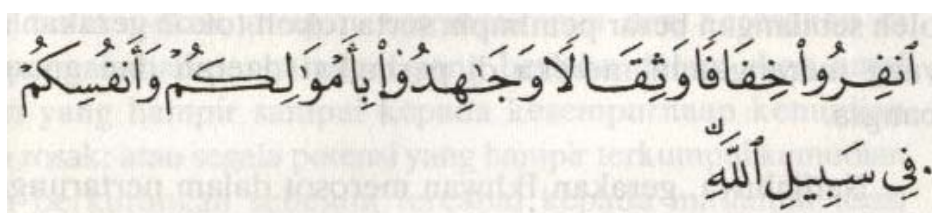 ٱنفِرُواْ خِفَافًا وَثِقَالًا وَجَـٰهِدُواْ بِأَمْوَٰلِكُمْ وَأَنفُسِكُمْ
فِى سَبِيلِ ٱللَّهِۚ